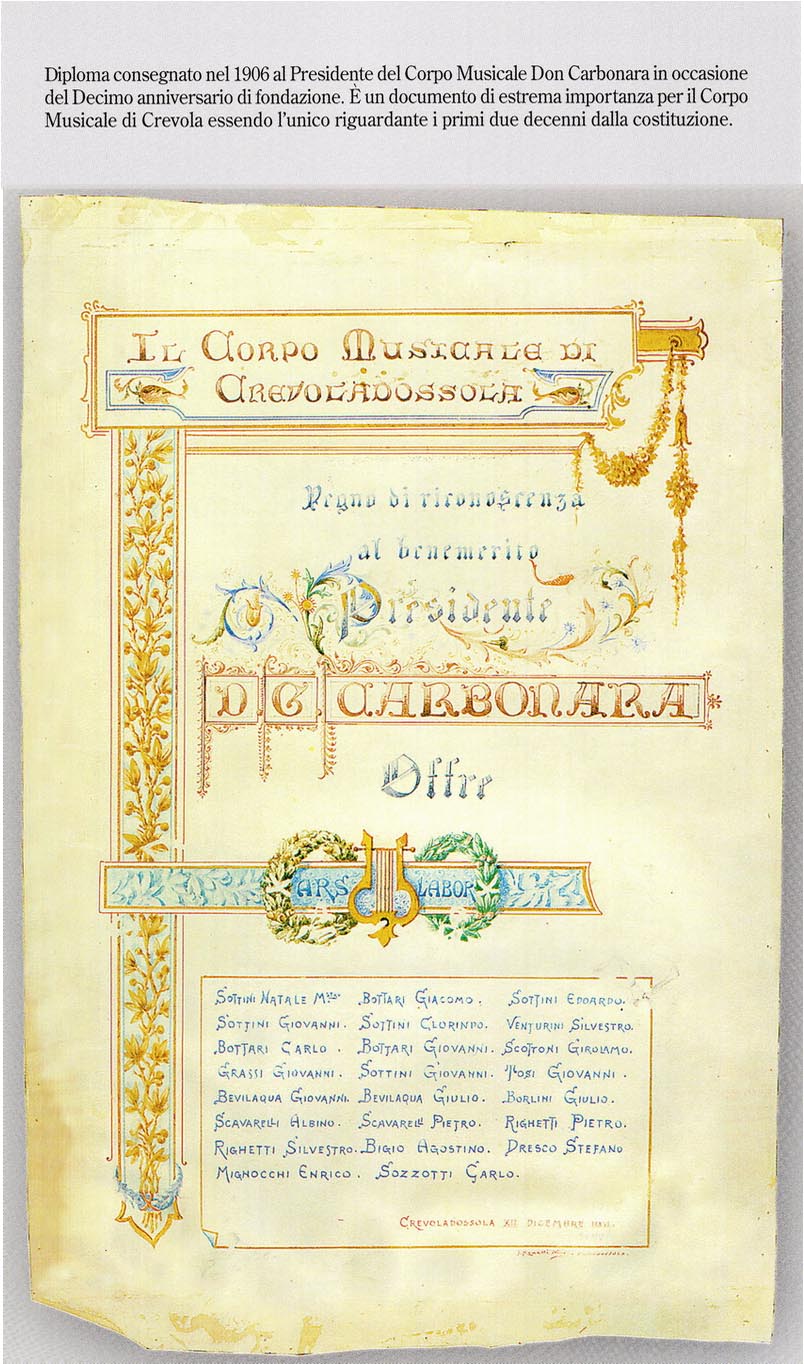 Diploma consegnato nel 1906 al Presidente del Corpo Musicale Don Carbonara in occasione
del Decimo anniversario di fondazione. È un documento di estrema importanza per il Corpo
Musicale di Crevola essendo l'unico riguardante i primi due decenni dalla costituzione.
Il Corpo Musicale di
Crevoladossola
Pegno di riconoscenza
al benemerito
Presidente
D. G. CARBONARA
Offre
ARS LABOR
Sottini Natale M.stro Bottari Giacomo. Sottini Edoardo.
Sottini Giovanni. Sottini Clorindo. Venturini Silvestro.
Bottari Carlo. Bottari Giovanni. Scottoni Girolamo.
Grassi Giovanni. Sottini Giovanni. Tosi Giovanni.
Bevilaqua Giovanni. Bevilaqua Giulio. Borlini Giulio.
Scavarelli Albino. Scavarelli Pietro. Righetti Pietro.
Righetti Silvestro. Bigio Agostino. Dresco Stefano
Mignocchi Enrico. Sozzotti Carlo.
Crevoladossola XII Dicembre